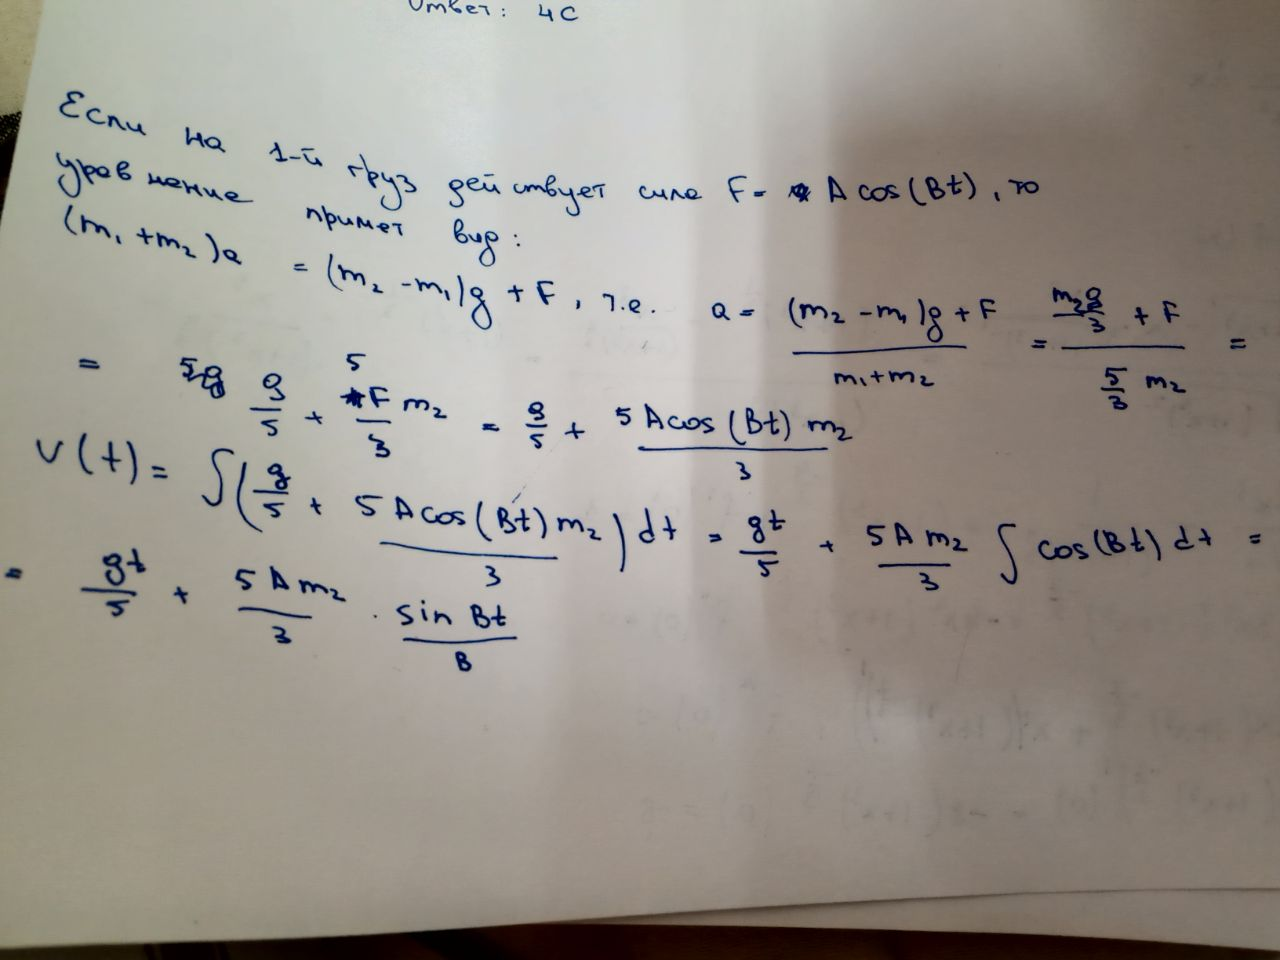 Ответ: 4с
Если на 1-й груз действует сила F = A cos(Bt), то
уравнение примет вид:
(m₁ + m₂)a = (m₂ - m₁)g + F, т.е. a = ((m₂ - m₁)g + F)/(m₁ + m₂) = (m₂g/3 + F)/(5/3 m₂) =
= g/5 + 5F m₂/3 = g/5 + 5 A cos(Bt) m₂/3
v(t) = ∫(g/5 + 5 A cos(Bt) m₂/3) dt = gt/5 + 5 A m₂/3 ∫ cos(Bt) dt =
= gt/5 + 5 A m₂/3 · sin Bt/B